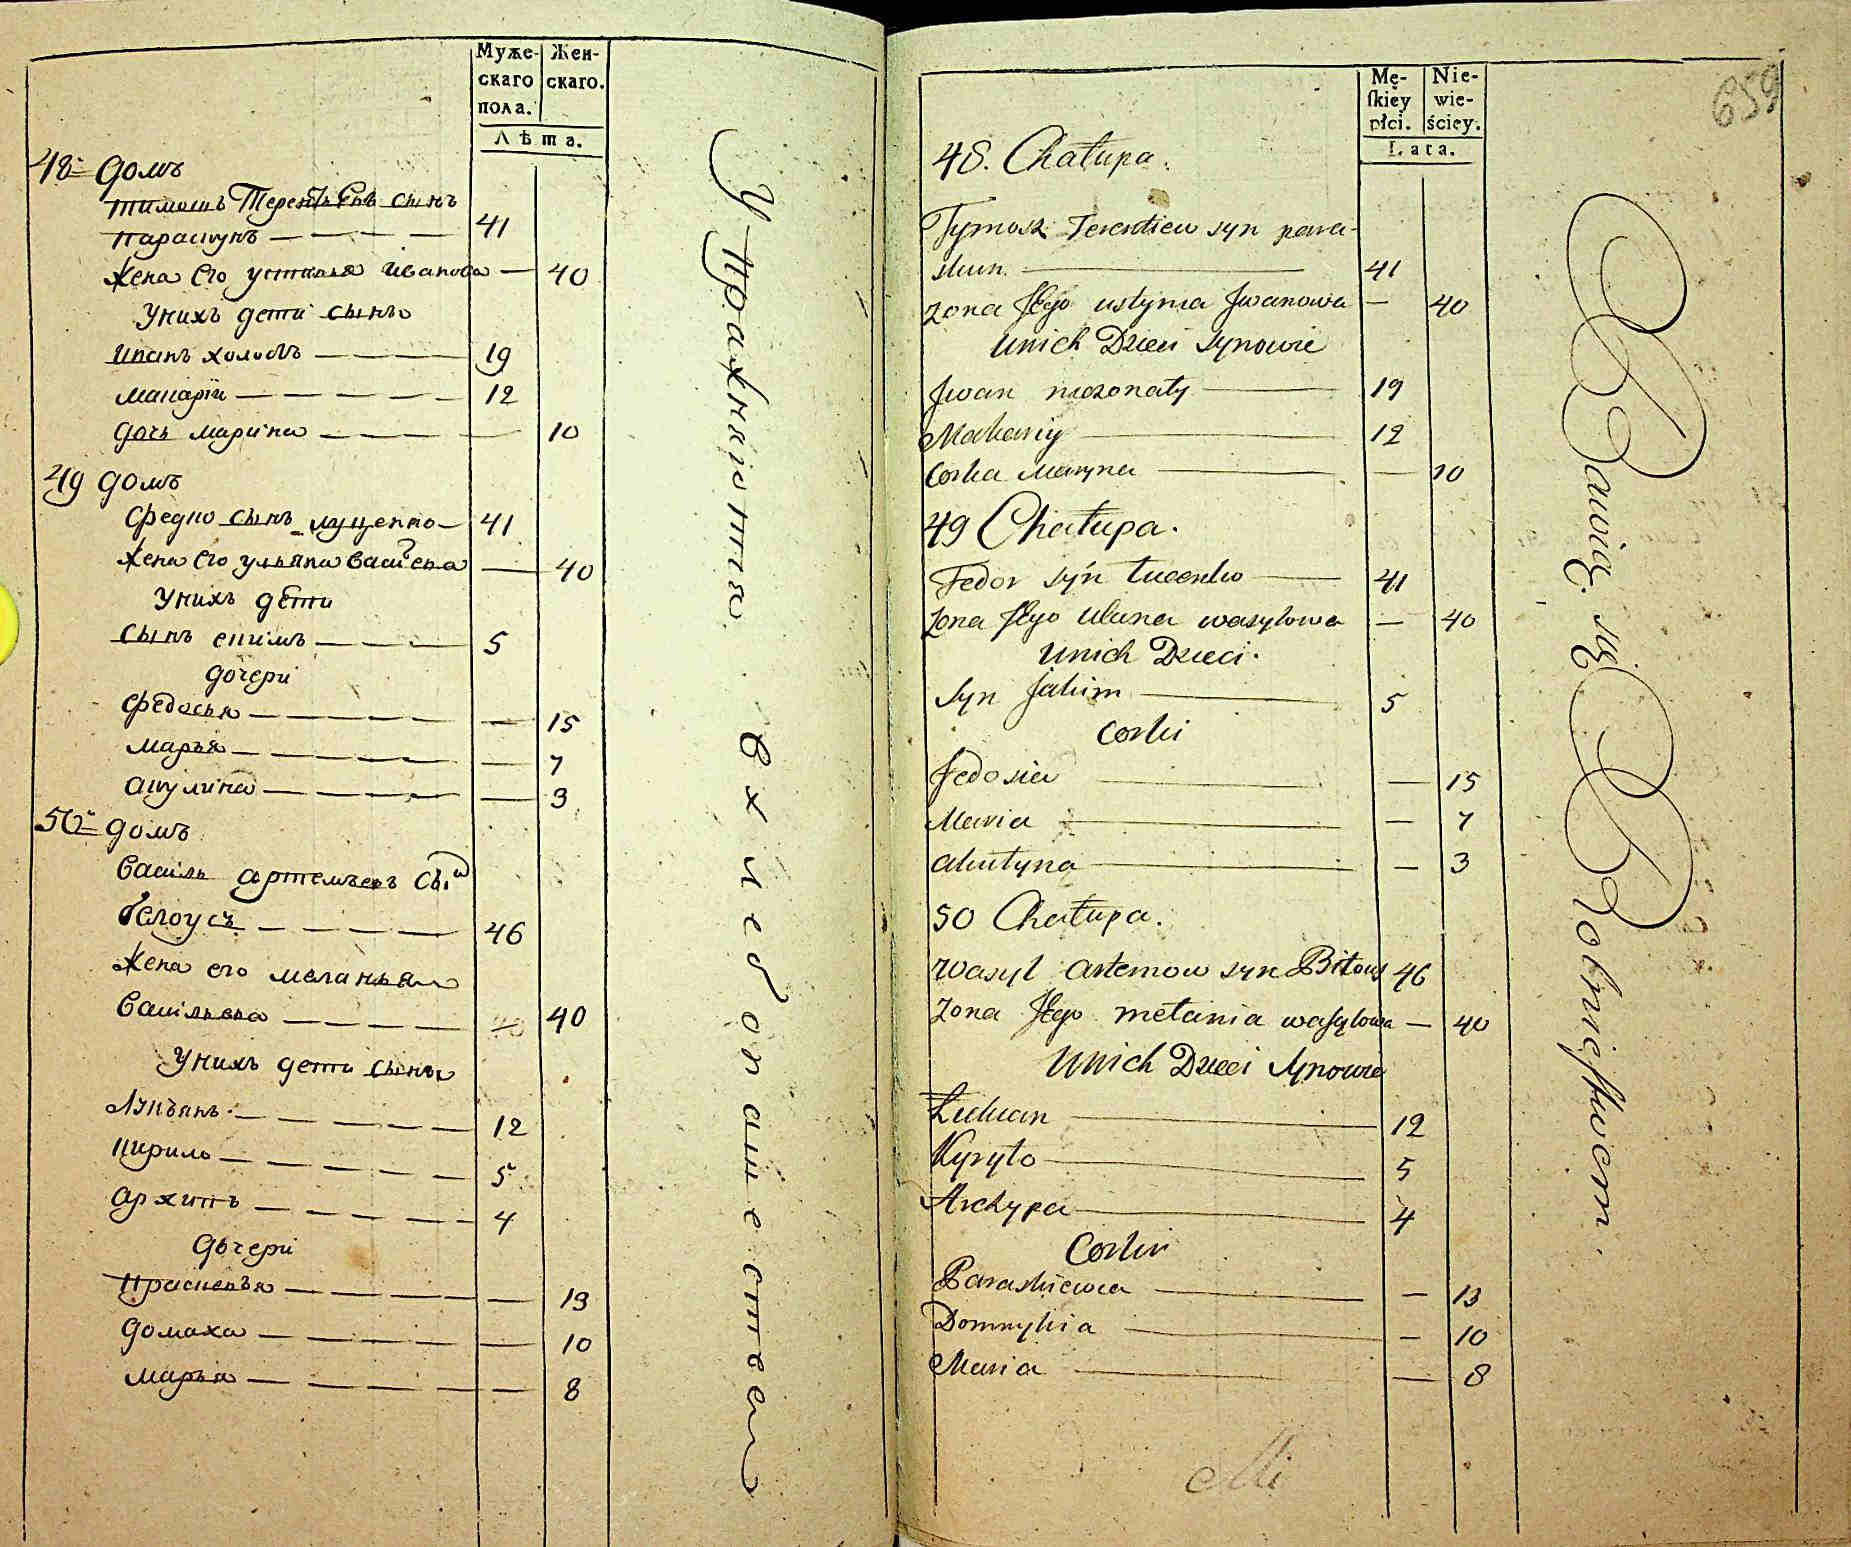 Муже-
скаго
пола.
Жен-
скаго.
Лѣта.
48 домъ
Тимошъ Терентьевъ сынъ
Параскунъ 41
Жена его устинья иванова 40
У нихъ дети сыны
иванъ холостъ 19
макарiй 12
дочь марина 10
49 домъ
Федко сынъ луценко 41
Жена его ульяна васильева 40
У нихъ дети
сынъ екимъ 5
дочери
федосья 15
марья 7
акулина 3
50 домъ
Василь артемьевъ сынъ
белоусъ 46
Жена его меланья
Васильева 40
У нихъ дети сыны
лукъянъ 12
кирило 5
архипъ 4
дочери
прасковья 13
домаха 10
марья 8
Упражняются в хлебопашестве
Mę-
ſkiéy
płci.
Nie-
wie-
ściey.
Lata.
659
48. Chałupa.
Tymosz Terentiew syn para-
skun 41
Zona Jego ustynia Jwanowa 40
Unich Dzieci Synowie
Jwan niezonaty 19
Makariy 12
Corka Maryna 10
49 Chałupa.
Fedor syn Lucenko 41
Zona Jego Uliana wasylowa 40
Unich Dzieci.
Syn Jakim 5
Corki
Fedosia 15
Maria 7
Akulyna 3
50 Chałupa.
Wasyl Artemow syn Biłous 46
Zona Jego mełania wasylowa 40
Unich Dzieci Synowie
Łukian 12
Kyryło 5
Archypa 4
Corki
Paraskiewia 13
Domnykia 10
Maria 8
Bawią się Rolnictwem.